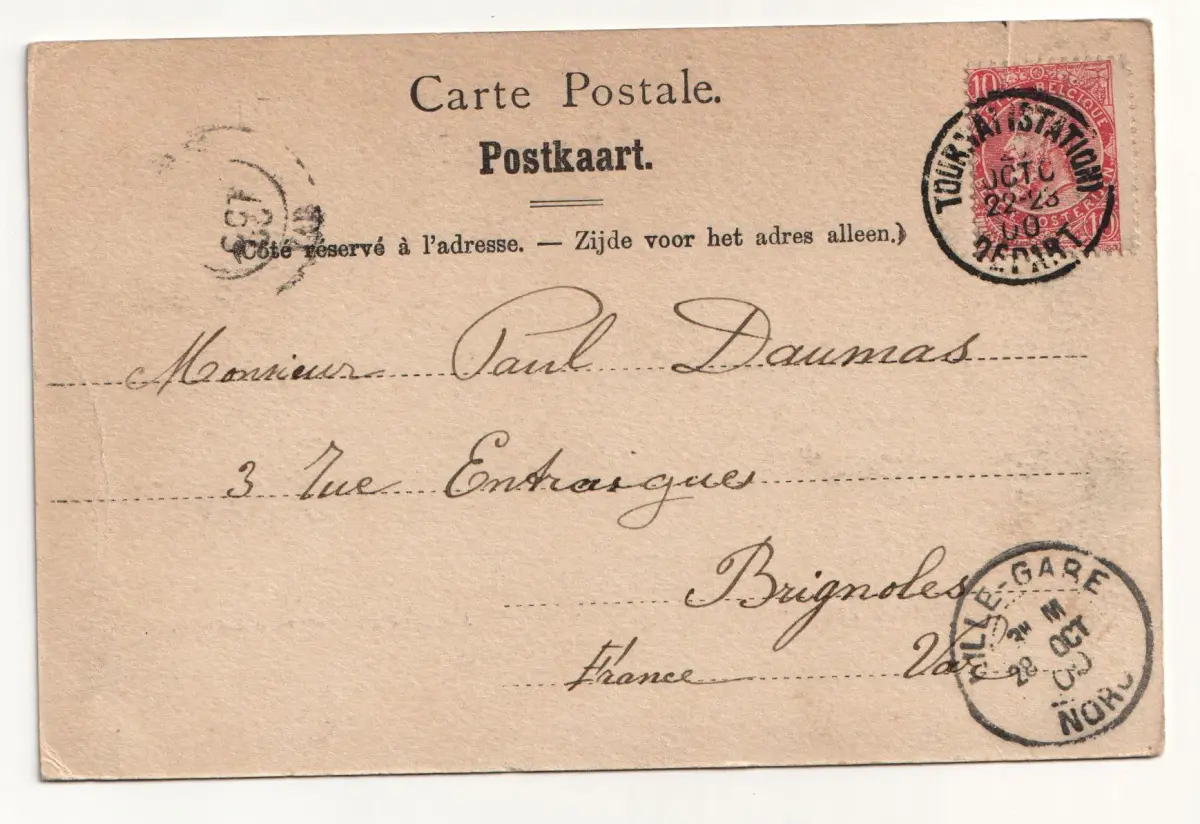 Carte Postale.
Postkaart.
(Côté réservé à l'adresse. — Zijde voor het adres alleen.)
10 BELGIQUE 10
TOURNAI (STATION)
OCTO
22-23
00
DEPART
OCT
Monsieur Paul Daumas
3 rue Entraigues
Brignoles
France Var
LILLE-GARE
M
28 OCT
00
NORD